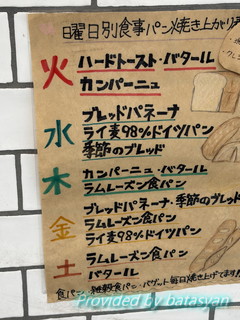 曜日別食事パン焼き上がり
火
ハードトースト・バタール
カンパーニュ
水
ブレッドパネーナ
ライ麦98%ドイツパン
季節のブレッド
木
カンパーニュ・バタール
ラムレーズン食パン
金
ブレッドパネーナ・季節のブレッド
ラムレーズン食パン
ライ麦98%ドイツパン
土
ラムレーズン食パン
バタール
食パン・雑穀食パン・バゲット毎日焼き上げてます!!
Provided by batasyan